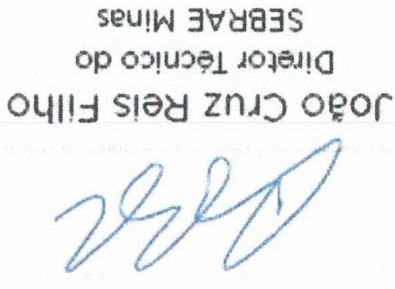 João Cruz Reis Filho
Diretor Técnico do
SEBRAE Minas